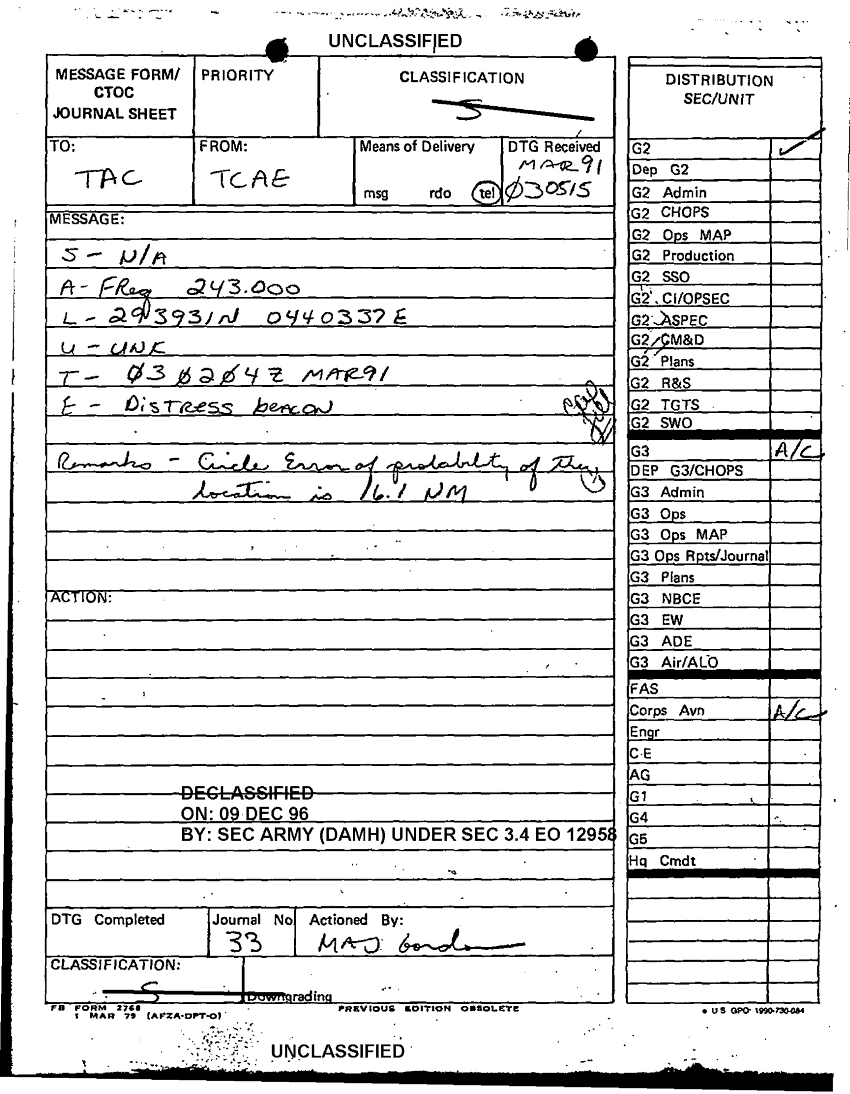 UNCLASSIFIED
MESSAGE FORM/
CTOC
JOURNAL SHEET
PRIORITY
CLASSIFICATION
S
TO:
TAC
FROM:
TCAE
Means of Delivery
msg rdo tel
DTG Received
MAR91
Ø30515
MESSAGE:
S - N/A
A - FReq 243.000
L - 293931N 0440337E
U - UNK
T - Ø3Ø2Ø4Z MAR91
E - DISTRESS beacon
Remarks - Circle Error of probability of the
location is 16.1 NM
ACTION:
DECLASSIFIED
ON: 09 DEC 96
BY: SEC ARMY (DAMH) UNDER SEC 3.4 EO 12958
DTG Completed
Journal No
33
Actioned By:
MAJ Gordon
CLASSIFICATION:
S
Downgrading
FB FORM 2768
1 MAR 79 (AFZA-DPT-O)
PREVIOUS EDITION OBSOLETE
UNCLASSIFIED
DISTRIBUTION
SEC/UNIT
G2 ✓
Dep G2
G2 Admin
G2 CHOPS
G2 Ops MAP
G2 Production
G2 SSO
G2 CI/OPSEC
G2 ASPEC
G2 CM&D
G2 Plans
G2 R&S
G2 TGTS
G2 SWO
G3 A/C
DEP G3/CHOPS
G3 Admin
G3 Ops
G3 Ops MAP
G3 Ops Rpts/Journal
G3 Plans
G3 NBCE
G3 EW
G3 ADE
G3 Air/ALO
FAS
Corps Avn A/C
Engr
C-E
AG
G1
G4
G5
Hq Cmdt
U S GPO 1990-730-084